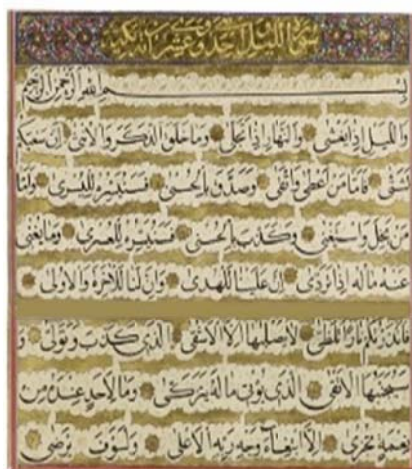 سورة الليل احدى وعشرون آية مكية
بسم الله الرحمن الرحيم
والليل اذا يغشى والنهار اذا تجلى وما خلق الذكر والانثى ان سعيكم
لشتى فاما من اعطى واتقى وصدق بالحسنى فسنيسره لليسرى واما
من بخل واستغنى وكذب بالحسنى فسنيسره للعسرى وما يغنى
عنه ماله اذا تردى ان علينا للهدى وان لنا للاخرة والاولى
فانذرتكم نارا تلظى لا يصليها الا الاشقى الذى كذب وتولى و
سيجنبها الاتقى الذى يؤتى ماله يتزكى وما لاحد عنده من
نعمة تجزى الا ابتغاء وجه ربه الاعلى ولسوف يرضى